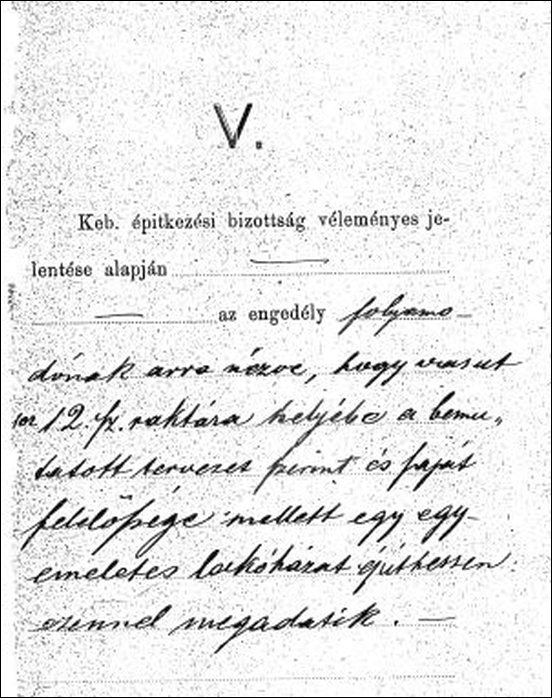 V.
Keb. épitkezési bizottság véleményes je-
lentése alapján
az engedély folyamo-
dónak arra nézve, hogy vasut
ter 12. sz. raktára helyébe a bemu„
tatott tervezet szerint és saját
felelőssége mellett egy egy-
emeletes lakóházat épithessen
ezennel megadatik. —